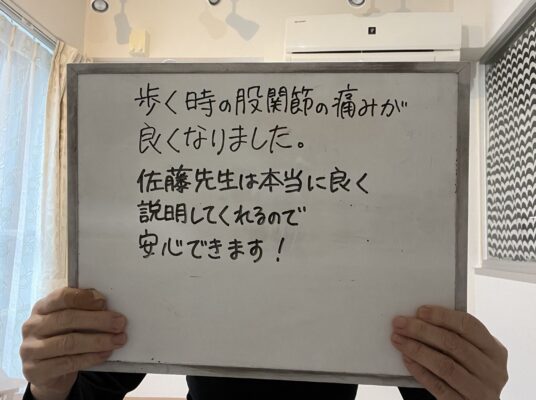 歩く時の股関節の痛みが
良くなりました。
佐藤先生は本当に良く
説明してくれるので
安心できます!